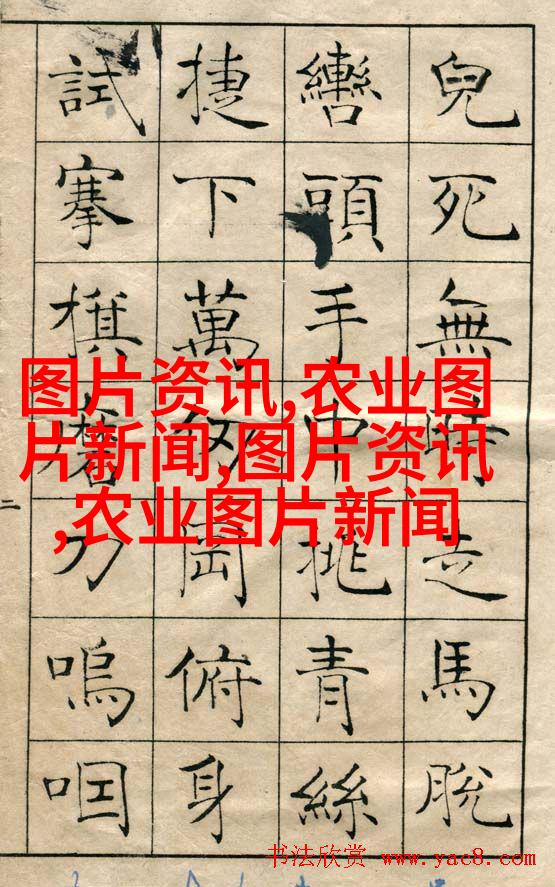 兒死無時走馬脫
轡頭手中挑青絲
捷下萬仞岡俯身
試搴旗磨刀嗚咽
二
图片资讯,农业图
片新闻,图片资讯
,农业图片新闻
书法欣赏 www.yac8.com